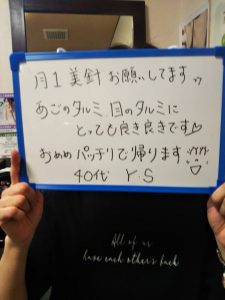 月1 美針 お願いしてます
あごのタルミ、目のタルミに
とっても良き良きです♡
おめめパッチリで帰ります
40代 Y.S
All of us
have each other's back